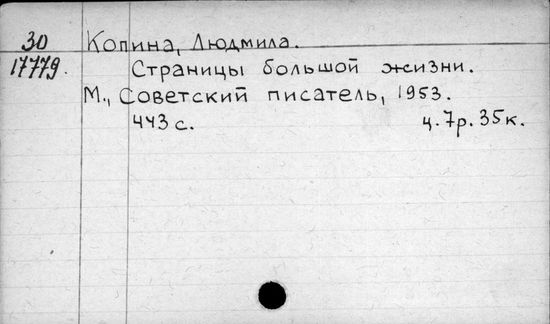 30 Копина, Людмила.
17779. Страницы большой жизни.
М., Советский писатель, 1953.
443 с. ц. 7р. 35к.